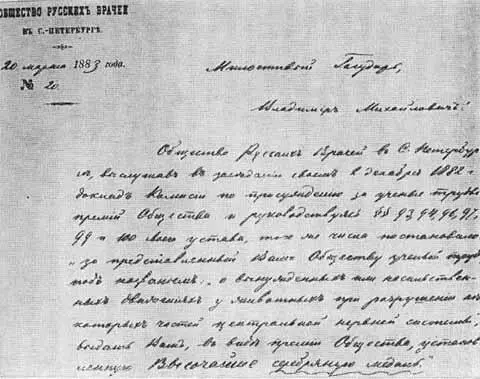 ОБЩЕСТВО РУССКИХЪ ВРАЧЕЙ
ВЪ С.-ПЕТЕРБУРГѢ.
20 марта 1883 года.
№ 20.
Милостивый Государь,
Владиміръ Михайловичъ!
Общество Русскихъ Врачей въ С. Петербур
гѣ, выслушавъ въ засѣданіи своемъ 2 декабря 1882 г
докладъ Комисіи по присужденію за ученые труды
премій Общества и руководствуясь §§ 93, 94, 96, 97,
99 и 100 Устава, того же числа постановило
„за представленный Вами Обществу ученый трудъ
подъ названіемъ: „о вынужденныхъ или насильствен
ныхъ движеніяхъ у животныхъ при разрушеніи нѣ
которыхъ частей центральной нервной системы",
выдать Вамъ, въ видѣ преміи Общества, установ
ленную Высочайше серебряную медаль".